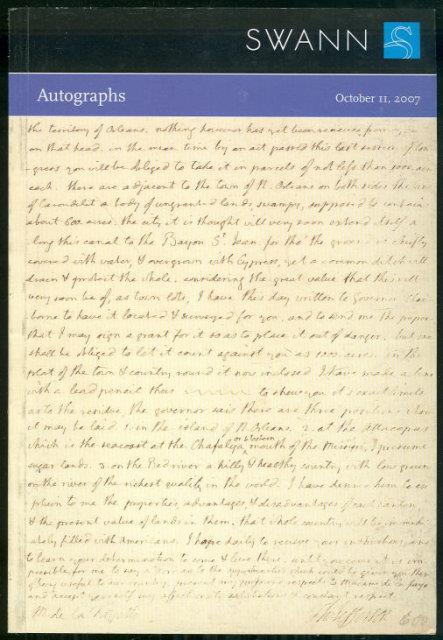 SWANN
Autographs
October 11, 2007
the territory of Orleans. nothing however has yet been received from
on that head. in the mean time by an act passed this last session of Con
-gress you will be obliged to take it in parcels of not less than 1000. acres
each. there are adjacent to the town of N. Orleans on both sides the
of Carondelet a body of ungranted lands, swampy, supposed to contain
about 600 acres. the city it is thought will very soon extend itself a
-long this canal to the Bayou St. Jean. for tho' the ground is chiefly
covered with water, & overgrown with Cypress, yet a common ditch will
drain & protect the whole. considering the great value that this will
very soon be of, as town lots, I have this day written to Governor Clai-
borne to have it located & surveyed for you, and to send me the papers
that I may sign a grant for it so as to place it out of danger. but we
shall be obliged to let it count against you as 1000. acres. in the
plat of the town & country round it now inclosed I have made a line
with a lead pencil thus to shew you it's exact limits
as to the residue, the governor sais there are three positions where
it may be laid. 1. in the island of N. Orleans. 2. at the Attacapas
which is the seacoast at the Chafalaya or Western mouth of the Missipi, I presume
sugar lands. 3. on the Red river a hilly & healthy country, with low grounds
on the river of the richest quality in the world. I have desired him to ex
plain to me the properties advantages & disadvantages of each canton,
& the present value of lands in them. that whole country will be immedi
ately filled with Americans. I hope daily to receive your instructions, and
to learn your determination to come & live there. until you come it is im
possible for me to say
of being useful to our country. present my
and accept yourself my affectionate salutations & constant respect.
M. de la Fayette
Th: Jefferson